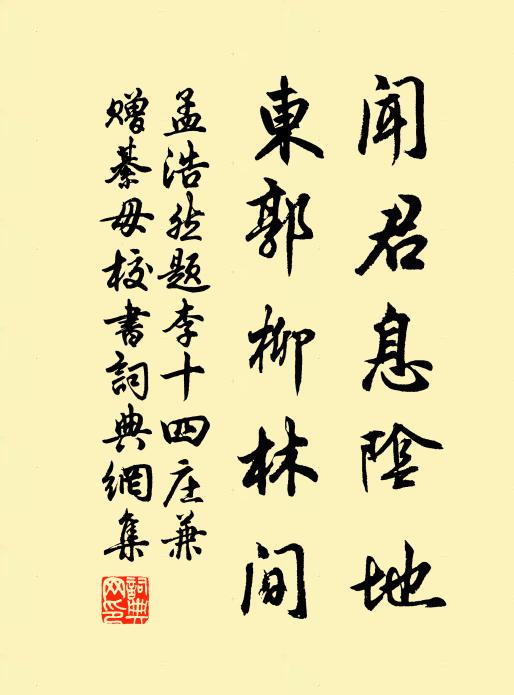 闻君息陰地
東郭柳林间
孟浩然题李十四庄兼
赠綦毋校書詞典網集
詞典网印